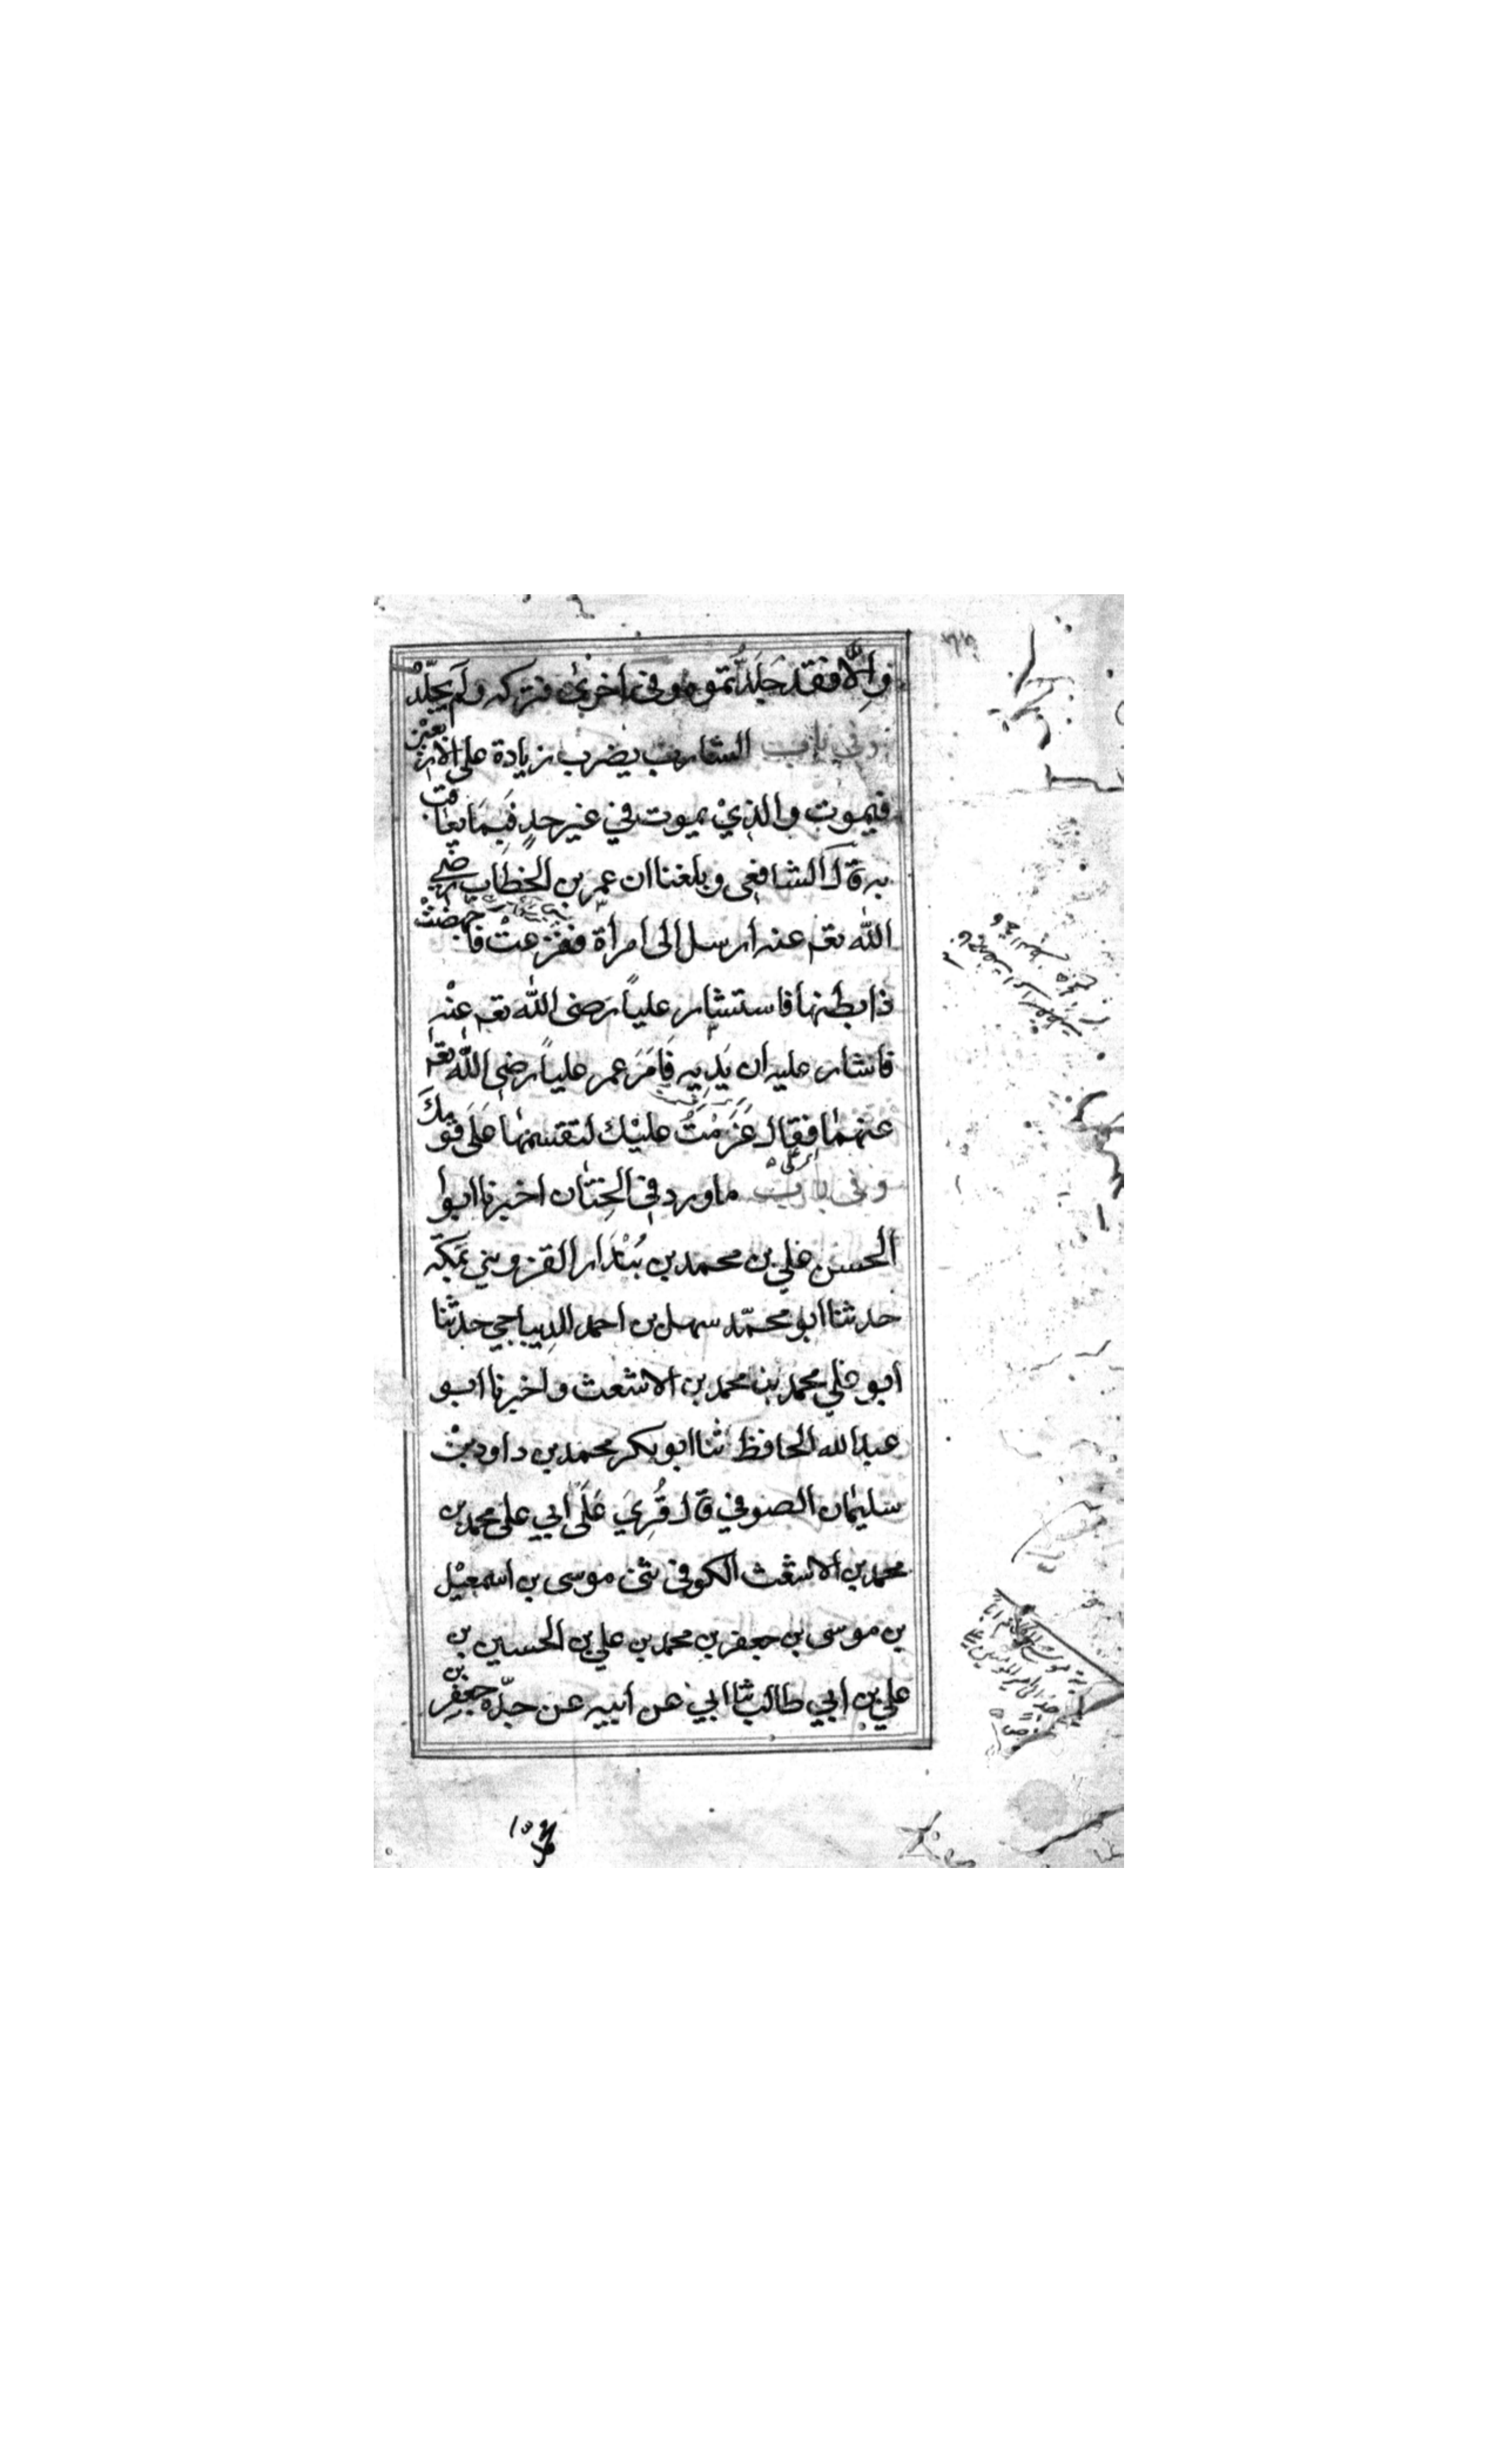 والا فقد جَلَدْتموه وفي اخرى فتركه ولم يجلّدْ
وفي باب الشارب يضرب زيادة على الاربعين
فيموت والذي يموت في غير حدٍ فيما يعاقب
به قال الشافعي وبلغنا ان عمر بن الخطاب رضي
الله تعم عنه ارسل الى امرأة ففزعت فاجهضت
ذا بطنها فاستشار علياً رضى الله تعم عنه
فاشار عليه ان يَدِيه فَامَرَ عمر علياً رضى الله تعم
عنهما فقال عَزَمْتُ عليْك لتقسمنها عَلَى قومك
وفى باب ما ورد في الختان اخبرنا ابوا
الحسن علي بن محمد بن بُنْدار القزويني بمكّه
حدثنا ابو محمّد سهل بن احمد الديباجي حدثنا
ابو علي محمد بن محمد بن الاشعث واخبرنا ابو
عبد الله الحافظ ثنا ابو بكر محمد بن داود بن
سليمان الصوفي قال قُرِيَ عَلَى ابي على محمد بن
محمد بن الاشعث الكوفى ثنى موسى بن اسمعيل
بن موسى بن جعفر بن محمد بن علي بن الحسين بن
علي بن ابي طالب ثنا ابي عن ابيه عن جدّه جعفر بن